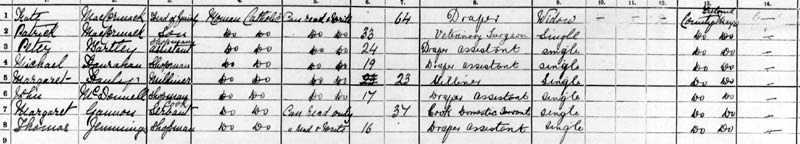 1 Kate MacCormack Head of Family Roman Catholic Can read & write 64 Draper Widow — — — — County Mayo —
2 Patrick MacCormack Son Do Do Do Do 33 Veterinary Surgeon Single — — — — Do Do —
3 Peter Hartley Shopman assistant Do Do Do Do 24 Draper assistant single — — — — Do Do —
4 Michael Shopman Do Do Do Do 19 Draper assistant single — — — — Do Do —
5 Margaret Milliner Do Do Do Do 23 Milliner Single — — — — Do Do —
6 John McDonnell Shopman Do Do Do Do 17 Draper assistant single — — — — Do Do —
7 Margaret Gannon Cook Servant Do Do Can read only 37 Cook Domestic Servant Single — — — — Do Do —
8 Thomas Jennings Shopman Do Do " read & write 16 Draper assistant Single — — — — Do Do —